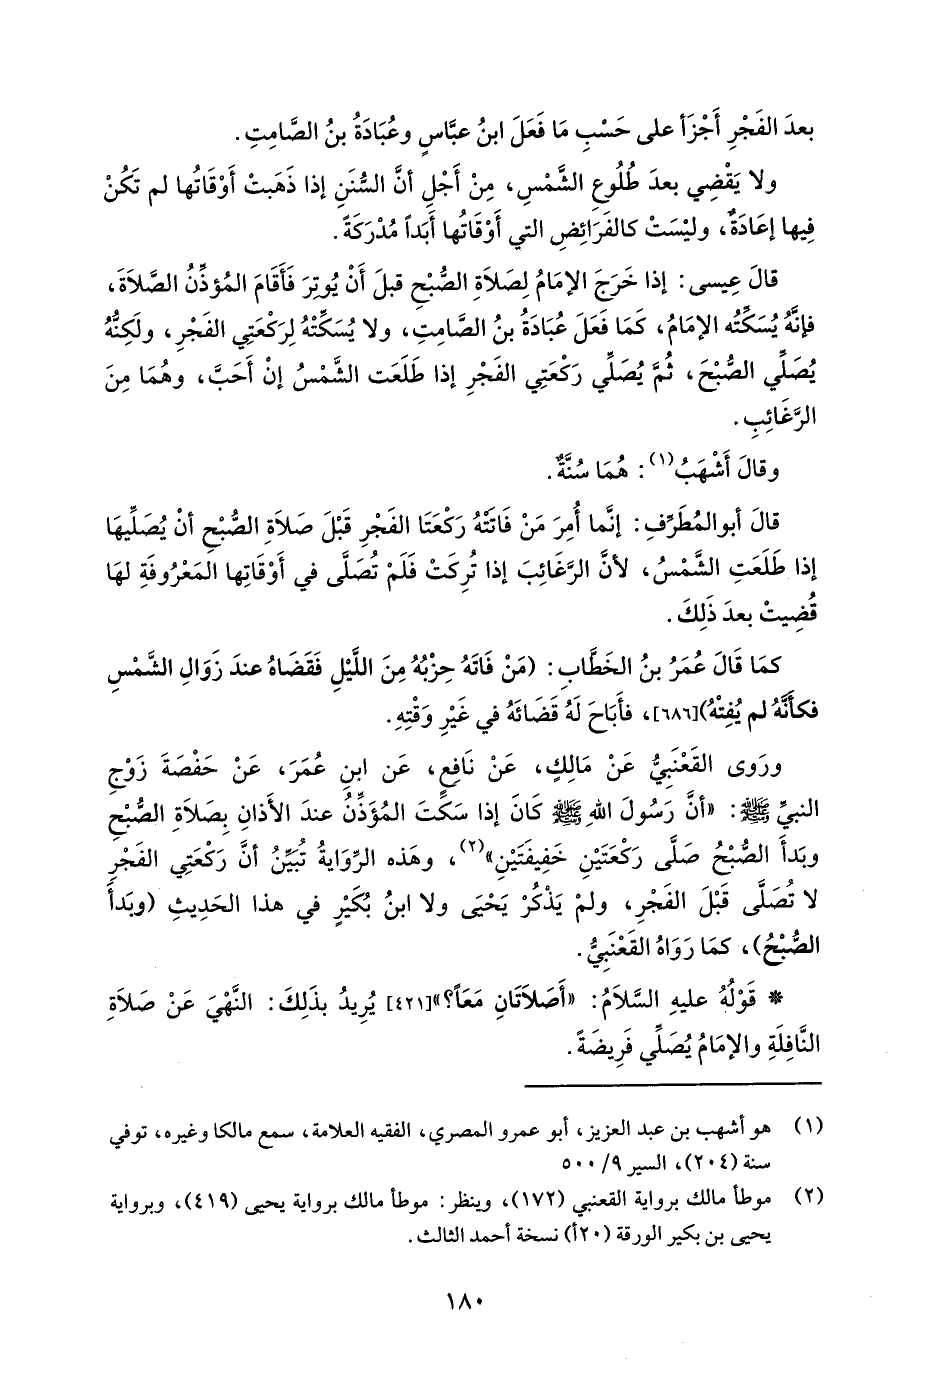 بعدَ الفَجْرِ أَجْزَأ على حَسْبِ مَا فَعَلَ ابنُ عبَّاسٍ وعُبَادَةُ بنُ الصَّامِتِ.
ولا يَقْضِي بعدَ طُلُوعِ الشَّمْسِ، مِنْ أَجْلِ أنَّ السُّنَنِ إذا ذَهَبتْ أَوْقَاتُها لم تَكُنْ
فِيها إعَادَةٌ، وليْسَتْ كالفَرَائِضِ التي أَوْقَاتُها أَبَداً مُدْرَكَةً.
قالَ عِيسى: إذا خَرَجَ الإمَامُ لِصَلاَةِ الصُّبْحِ قبلَ أَنْ يُوتِرَ فَأَقَامَ المُؤذِّنُ الصَّلاَةَ،
فإنَّهُ يُسَكِّتُه الإمَامُ، كَمَا فَعَلَ عُبَادَةُ بنُ الصَّامِتِ، ولا يُسَكِّتْهُ لِرَكْعَتِي الفَجْرِ، ولَكِنَّهُ
يُصَلِّي الصُّبْحَ، ثُمَّ يُصَلِّي رَكْعَتِي الفَجْرِ إذا طَلَعَت الشَّمْسُ إنْ أَحَبَّ، وهُمَا مِنَ
الرَّغَائِبِ.
وقالَ أَشْهَبُ(١): هُمَا سُنَّةٌ.
قالَ أبوالمُطَرِّفِ: إنَّما أُمِرَ مَنْ فَاتَتْهُ رَكْعَتَا الفَجْرِ قَبْلَ صَلاَةِ الصُّبْحِ أنْ يُصَلِّيهَا
إذا طَلَعَتِ الشَّمْسُ، لأنَّ الرَّغَائِبَ إذا تُرِكَتْ فَلَمْ تُصَلَّى في أَوْقَاتِها المَعْرُوفَةِ لهَا
قُضِيتْ بعدَ ذَلِكَ.
كمَا قَالَ عُمَرُ بنُ الخَطَّابِ: (مَنْ فَاتَهُ حِزْبُهُ مِنَ اللَّيْلِ فَقَضَاهُ عندَ زَوَالِ الشَّمْسِ
فكأنَّهُ لم يُفِتْهُ)[٦٨٦]، فأَبَاحَ لَهُ قَضَائَهُ في غَيْرِ وَقْتِهِ.
ورَوى القَعْنَبِيُّ عَنْ مَالِكٍ، عَنْ نَافِعٍ، عَن ابنِ عُمَرَ، عَنْ حَفْصَةَ زَوْجِ
النبيِّ ﷺ: «أنَّ رَسُولَ اللهِ ﷺ كَانَ إذا سَكَتَ المُؤَذِّنُ عندَ الأَذانِ بِصَلاَةِ الصُّبْحِ
وبَدأَ الصُّبْحُ صَلَّى رَكْعَتَيْنِ خَفِيفَتَيْنِ»(٢)، وهَذه الرِّوَايةُ تُبيِّنُ أنَّ رَكْعَتِي الفَجْرِ
لا تُصَلَّى قَبْلَ الفَجْرِ، ولمْ يَذْكُرْ يَحْيَى ولا ابنُ بُكَيْرٍ في هذا الحَدِيثِ (وبَدأَ
الصُّبْحُ)، كمَا رَوَاهُ القَعْنَبِيُّ.
* قَوْلُهُ عليهِ السَّلاَمُ: «أَصَلاَتَانِ مَعَاً؟»[٤٢١] يُرِيدُ بذَلِكَ: النَّهْيَ عَنْ صَلاَةِ
النَّافِلَةِ والإمَامُ يُصَلِّي فَرِيضَةً.
(١) هو أشهب بن عبد العزيز، أبو عمرو المصري، الفقيه العلامة، سمع مالكا وغيره، توفي
سنة (٢٠٤)، السير ٩/ ٥٠٠
(٢) موطأ مالك برواية القعنبي (١٧٢)، وينظر: موطأ مالك برواية يحيى (٤١٩)، وبرواية
يحيى بن بكير الورقة (٢٠أ) نسخة أحمد الثالث.
١٨٠